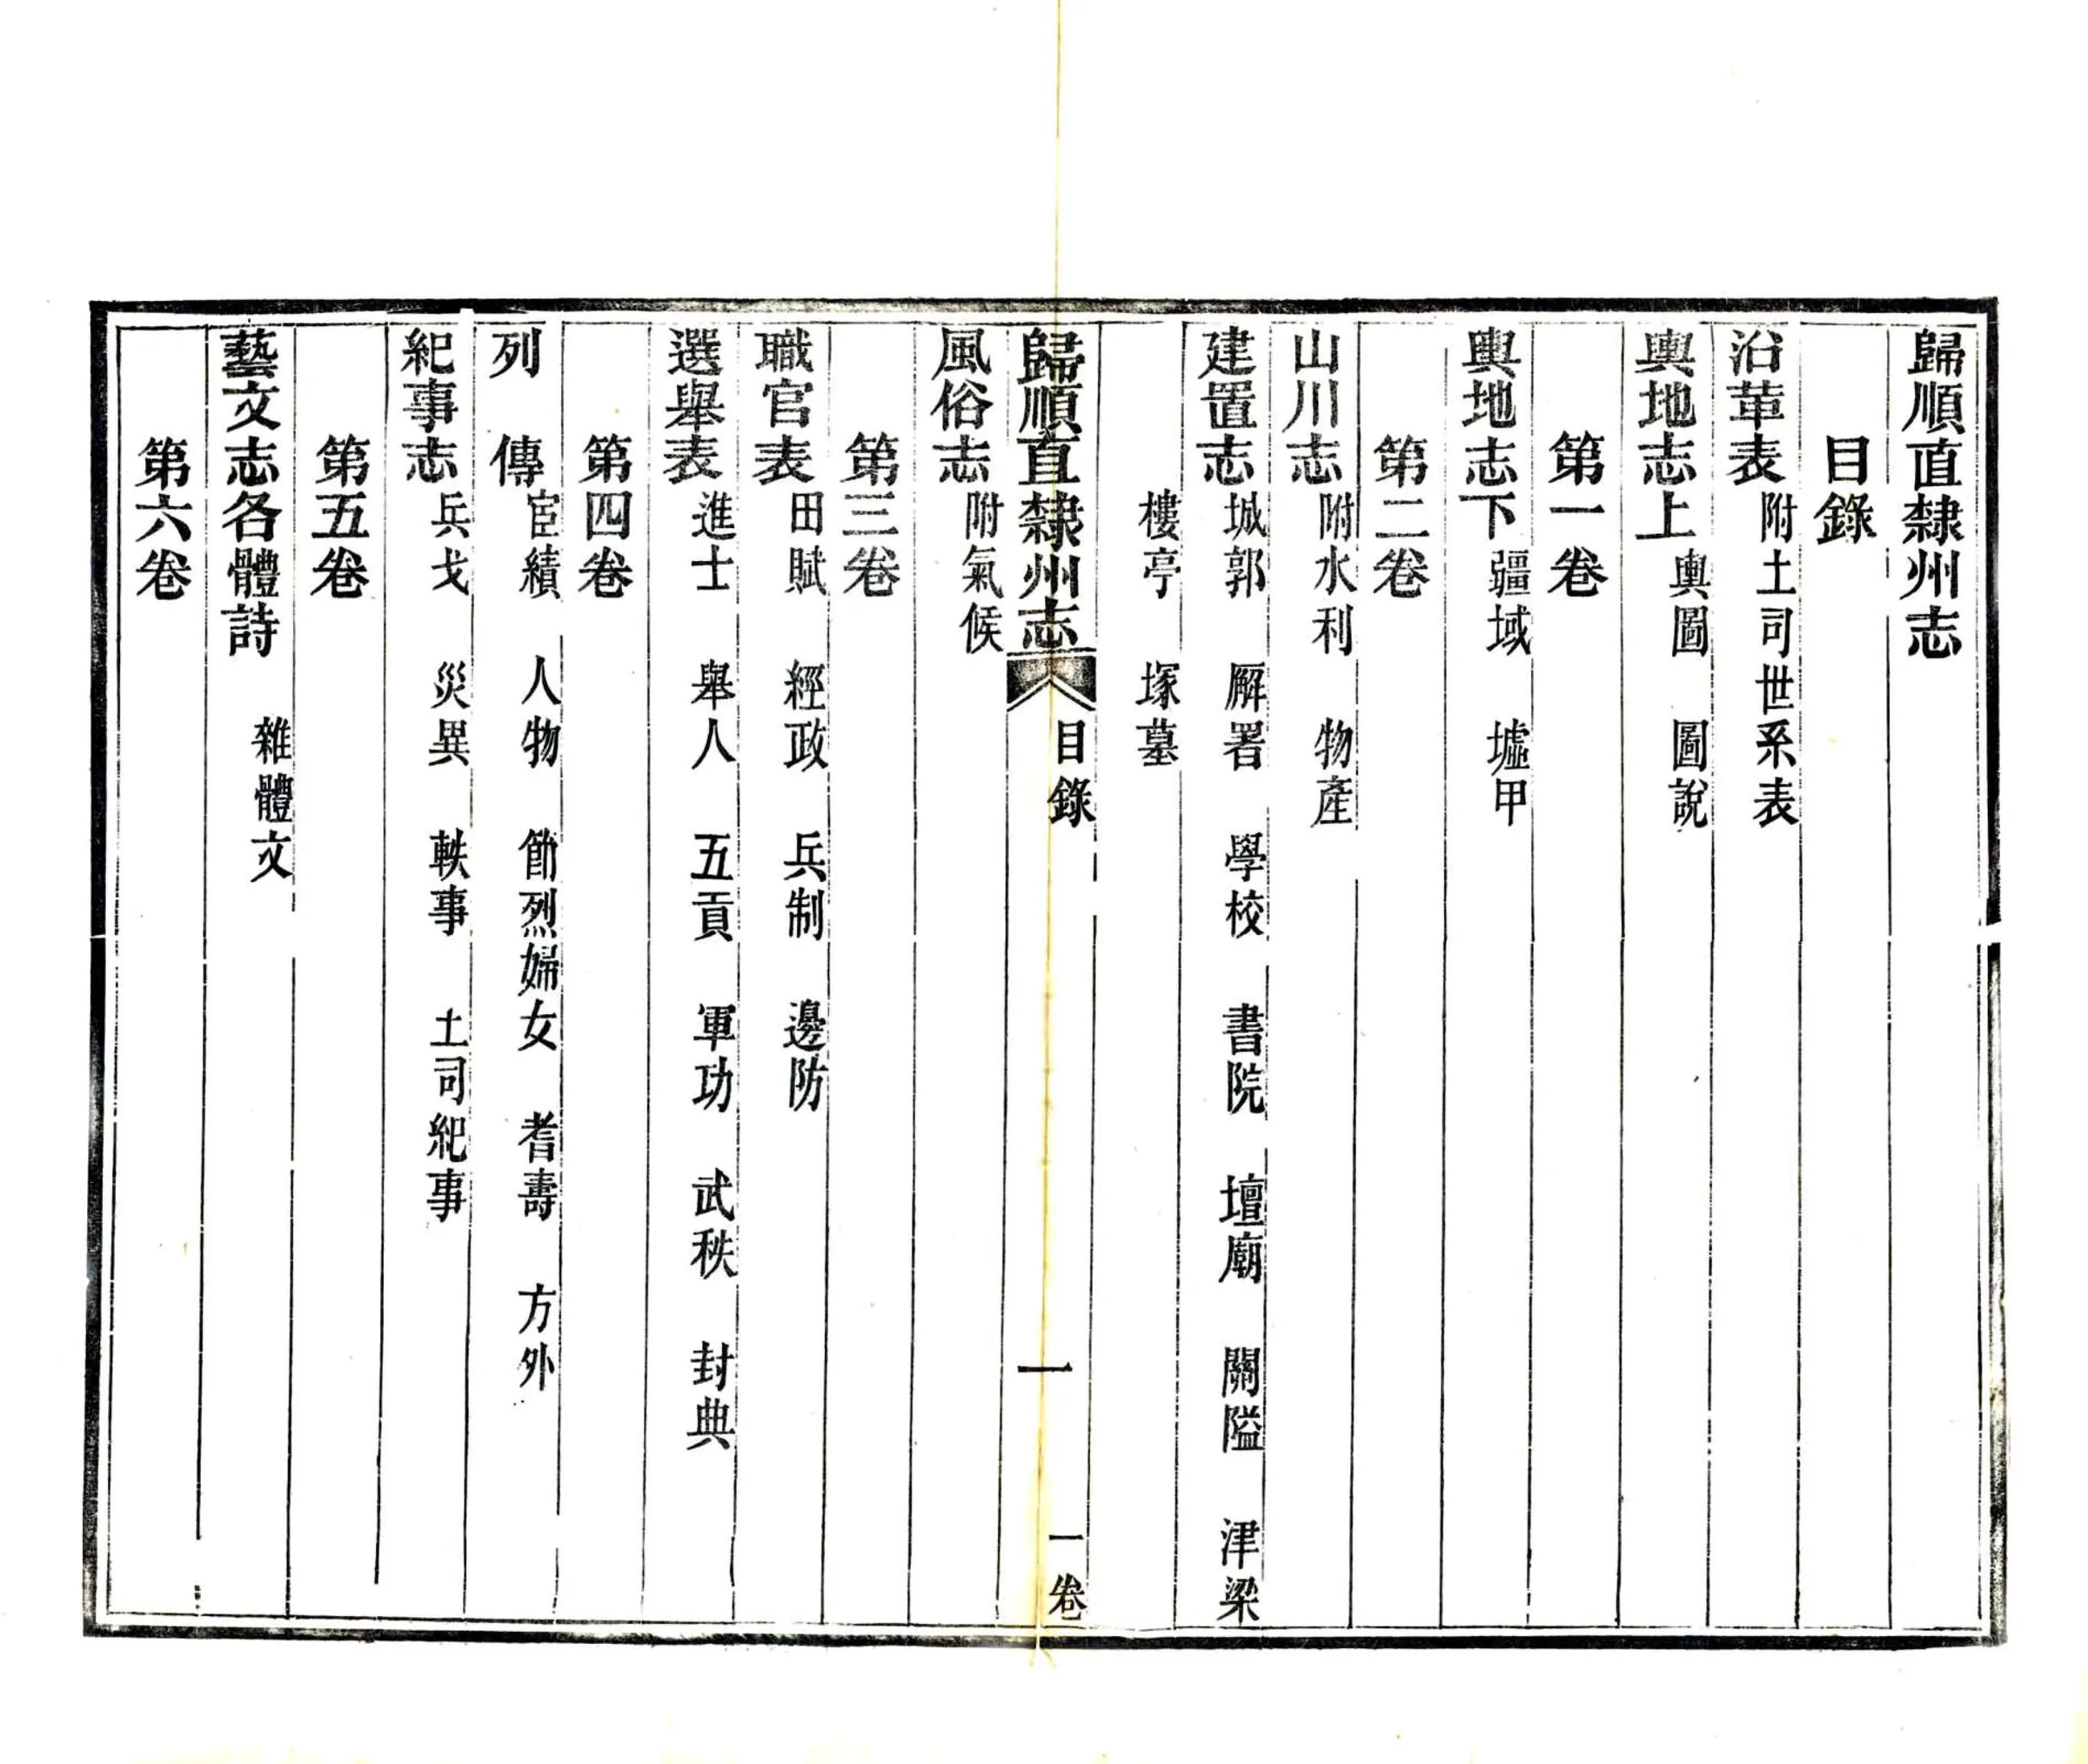 歸順直隸州志
目錄
沿革表 附土司世系表
輿地志上 輿圖 圖說
第一卷
輿地志下 疆域 墟甲
第二卷
山川志 附水利 物產
建置志 城郭 廨署 學校 書院 壇廟 關隘 津梁
樓亭 塚墓
歸順直隸州志 目錄 一 一卷
風俗志 附氣候
第三卷
職官表 田賦 經政 兵制 邊防
選舉表 進士 舉人 五貢 軍功 武秩 封典
第四卷
列傳 宦績 人物 節烈婦女 耆壽 方外
紀事志 兵戈 災異 軼事 土司紀事
第五卷
藝文志各體詩 雜體文
第六卷